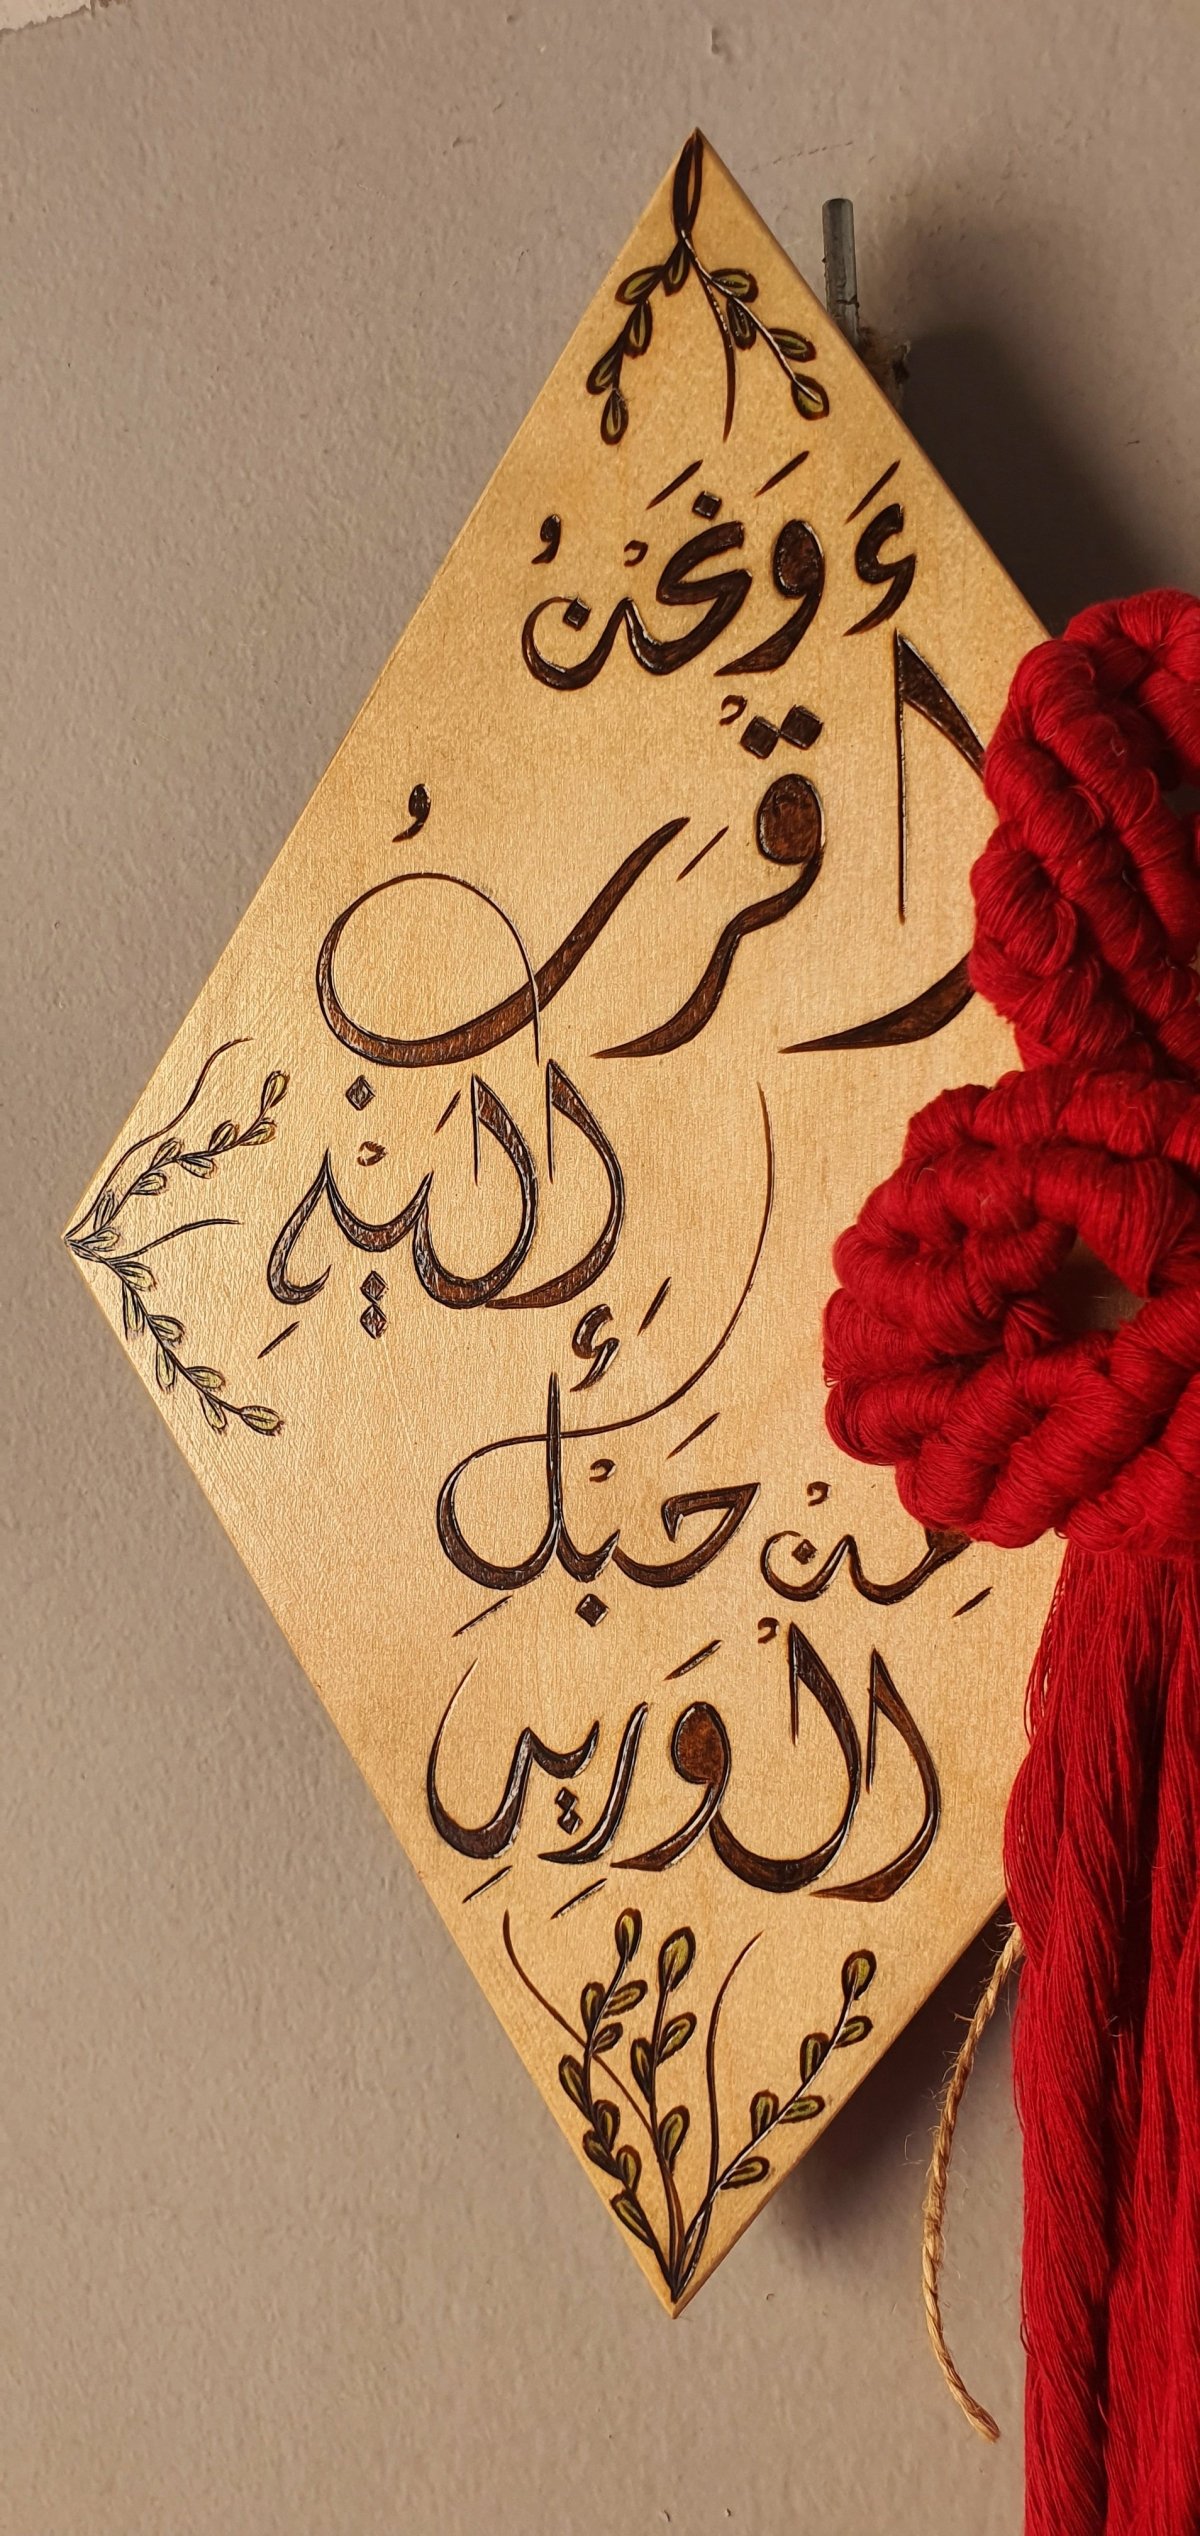 وَنَحْنُ
أَقْرَبُ
إِلَيْهِ
مِنْ حَبْلِ
الْوَرِيدِ